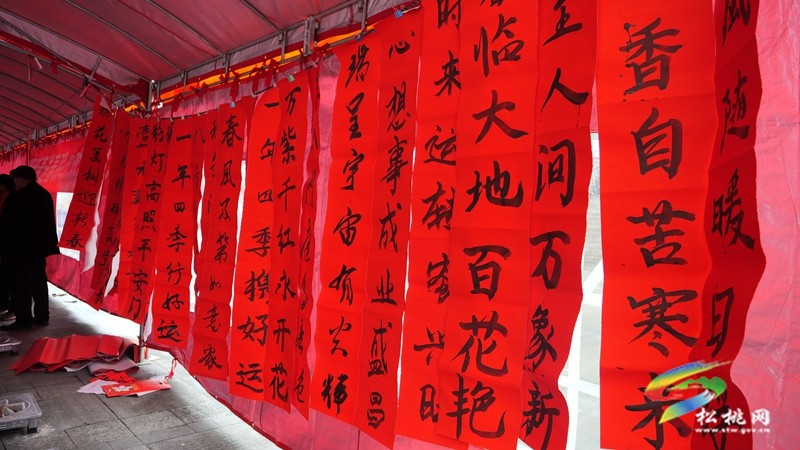 迎新春
灯高照平安门
一年四季行好运
春风及第如意家
一年四季好运
万紫千红永开花
瑞呈宇宙有光辉
心想事成业盛昌
时来运转家兴旺
临大地百花艳
主人间万象新
香自苦寒来
风随暖日
松桃网
www.stw.gov.cn